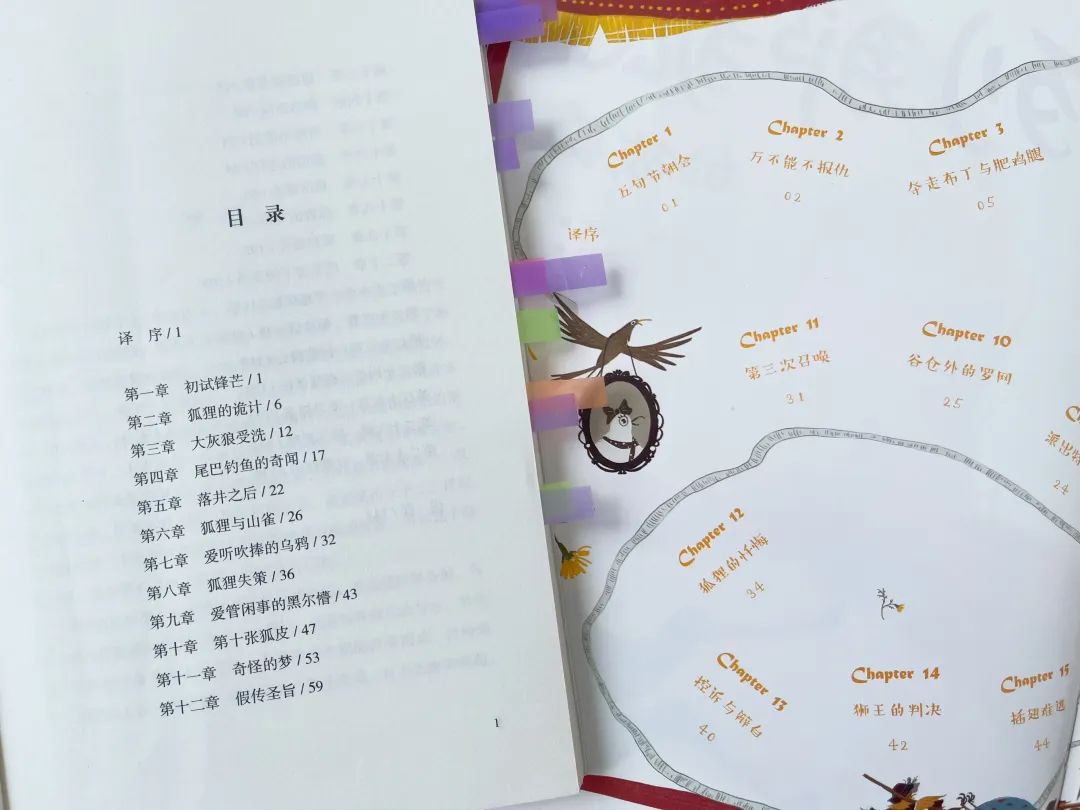 目 录
译 序 / 1
第一章 初试锋芒 / 1
第二章 狐狸的诡计 / 6
第三章 大灰狼受洗 / 12
第四章 尾巴钓鱼的奇闻 / 17
第五章 落井之后 / 22
第六章 狐狸与山雀 / 26
第七章 爱听吹捧的乌鸦 / 32
第八章 狐狸失策 / 36
第九章 爱管闲事的黑尔懵 / 43
第十章 第十张狐皮 / 47
第十一章 奇怪的梦 / 53
第十二章 假传圣旨 / 59
1
译序
Chapter 1
五旬节朝会
01
Chapter 2
万不能不报仇
02
Chapter 3
夺走布丁与肥鸡腿
05
Chapter 11
第三次召唤
31
Chapter 10
谷仓外的罗网
25
派出
24
Chapter 12
狐狸的忏悔
34
Chapter 13
控诉与辩白
40
Chapter 14
狮王的判决
42
Chapter 15
插翅难逃
44